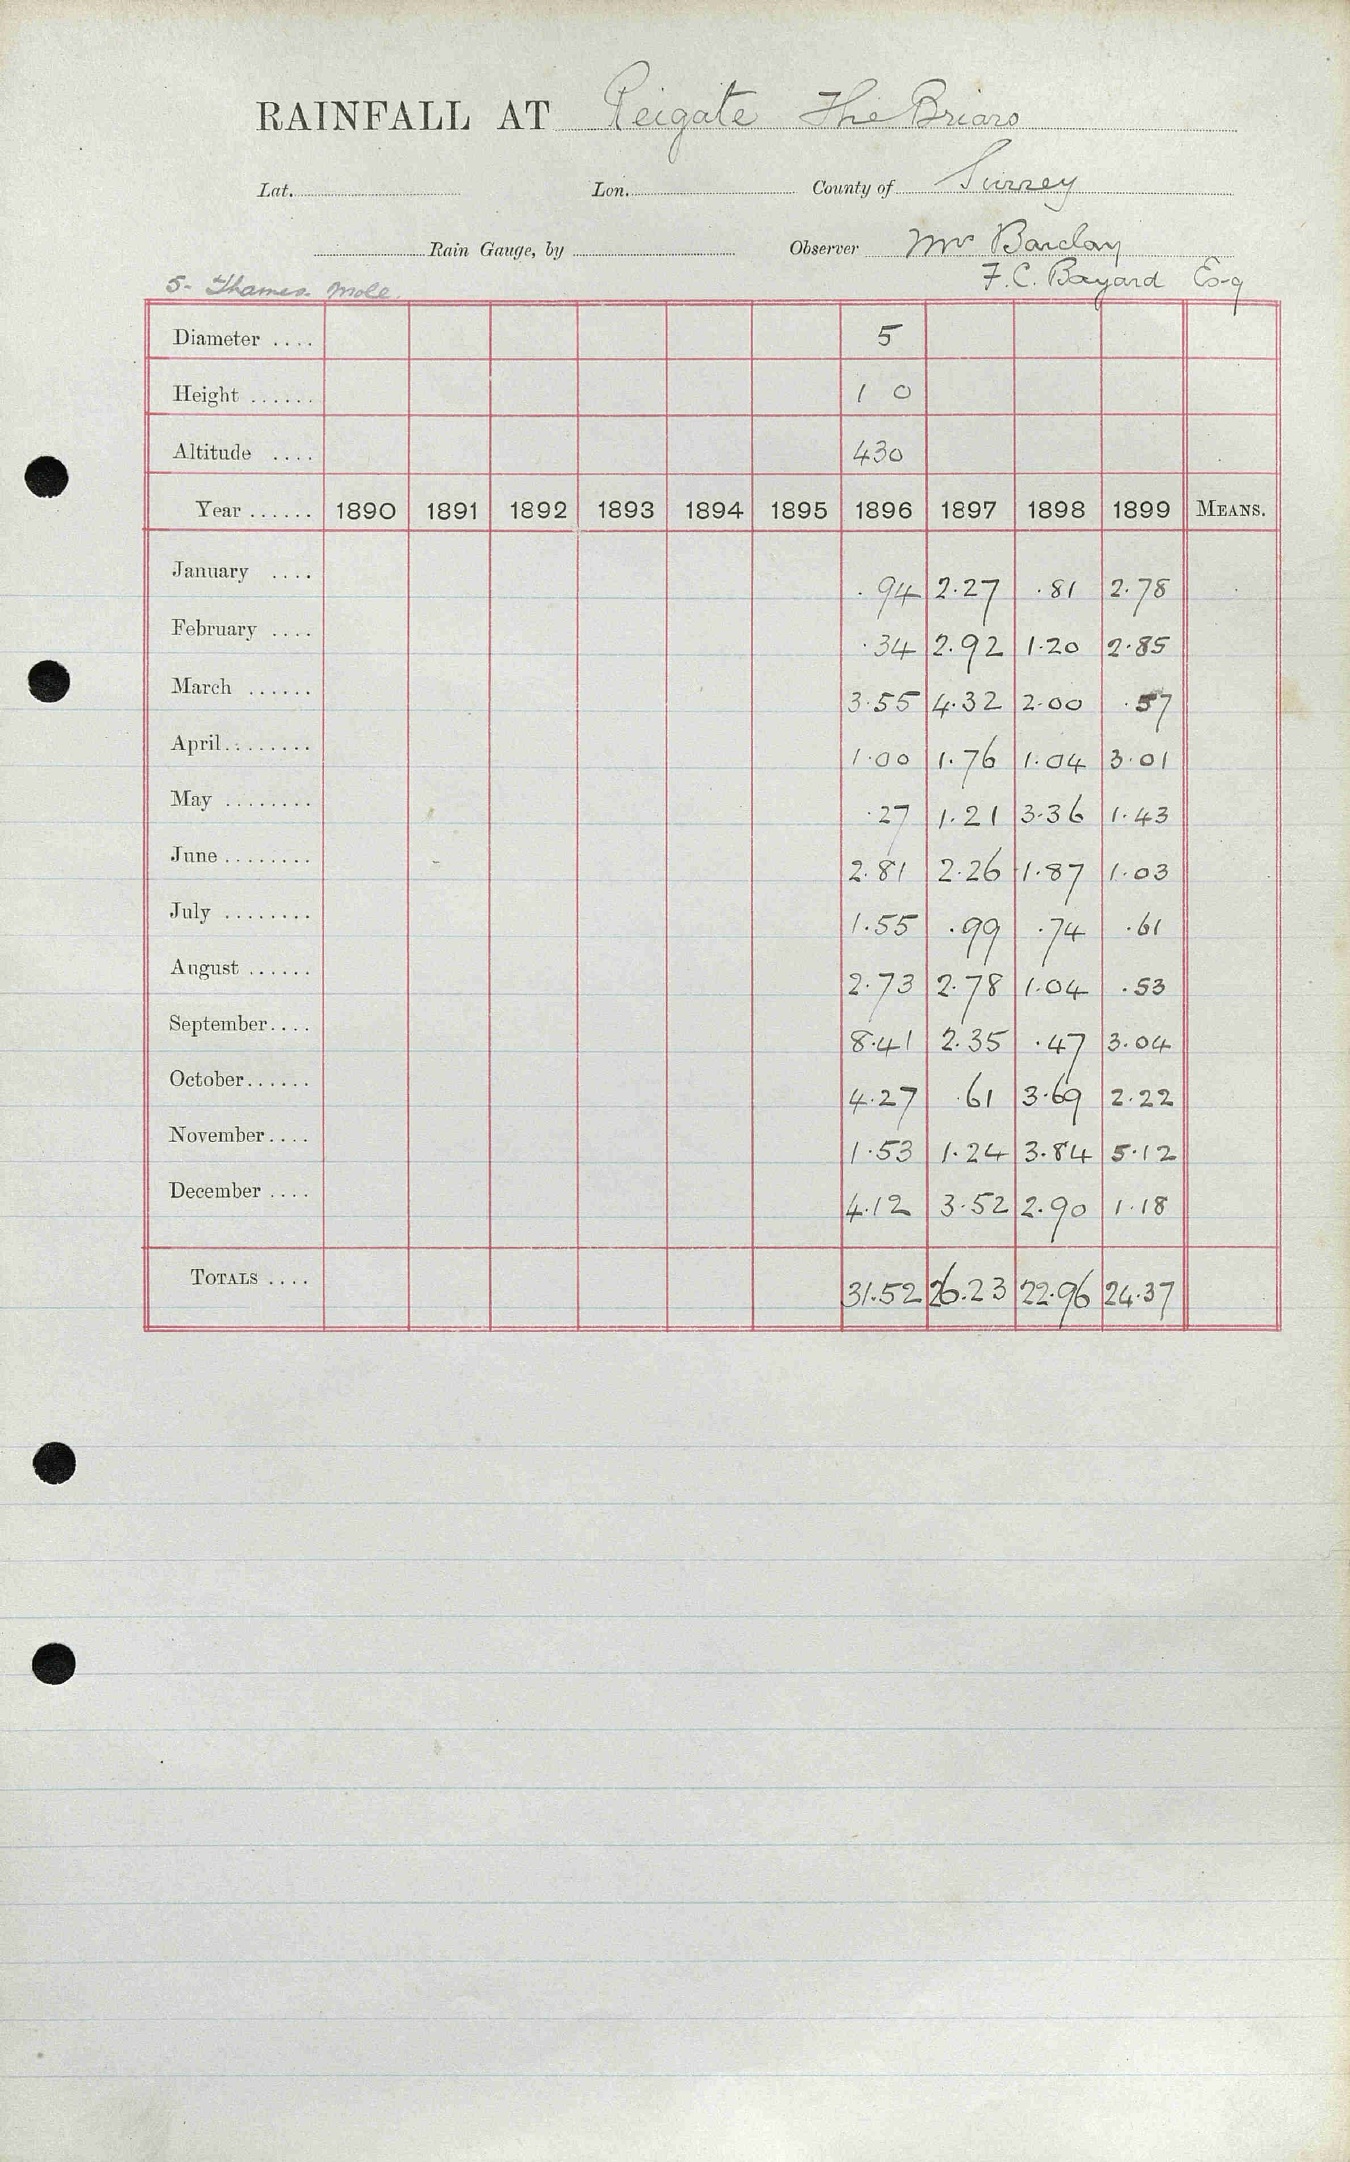 RAINFALL AT Reigate The Briars
Lat. Lon. County of Surrey
Rain Gauge, by Observer Mrs Barclay
F. C. Bayard Esq
5- Thames. Mole.
Diameter .... 5
Height ...... 1 0
Altitude .... 430
Year ...... 1890 1891 1892 1893 1894 1895 1896 1897 1898 1899 MEANS.
January .... .94 2.27 .81 2.78
February .... .34 2.92 1.20 2.85
March ...... 3.55 4.32 2.00 .57
April ........ 1.00 1.76 1.04 3.01
May ........ .27 1.21 3.36 1.43
June ........ 2.81 2.26 1.87 1.03
July ........ 1.55 .99 .74 .61
August ...... 2.73 2.78 1.04 .53
September.... 8.41 2.35 .47 3.04
October...... 4.27 .61 3.69 2.22
November.... 1.53 1.24 3.84 5.12
December .... 4.12 3.52 2.90 1.18
TOTALS .... 31.52 26.23 22.96 24.37